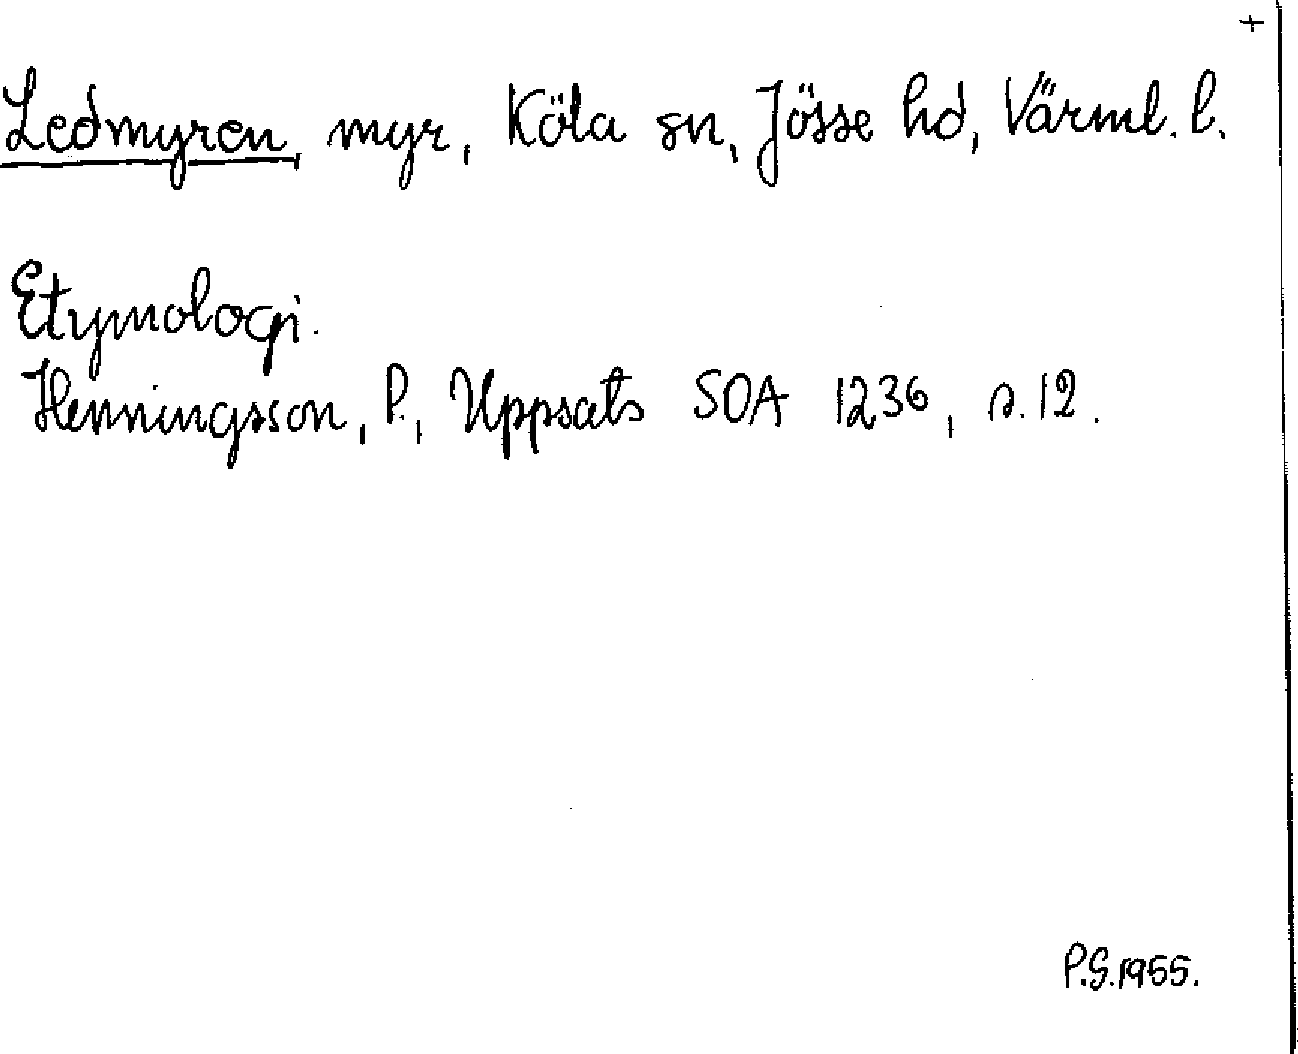 +
Ledmyren, myr, Köla sn, Jösse hd, Värml. l.
Etymologi.
Henningsson, P., Uppsats SOA 1236, s. 12.
P.G. 1955.